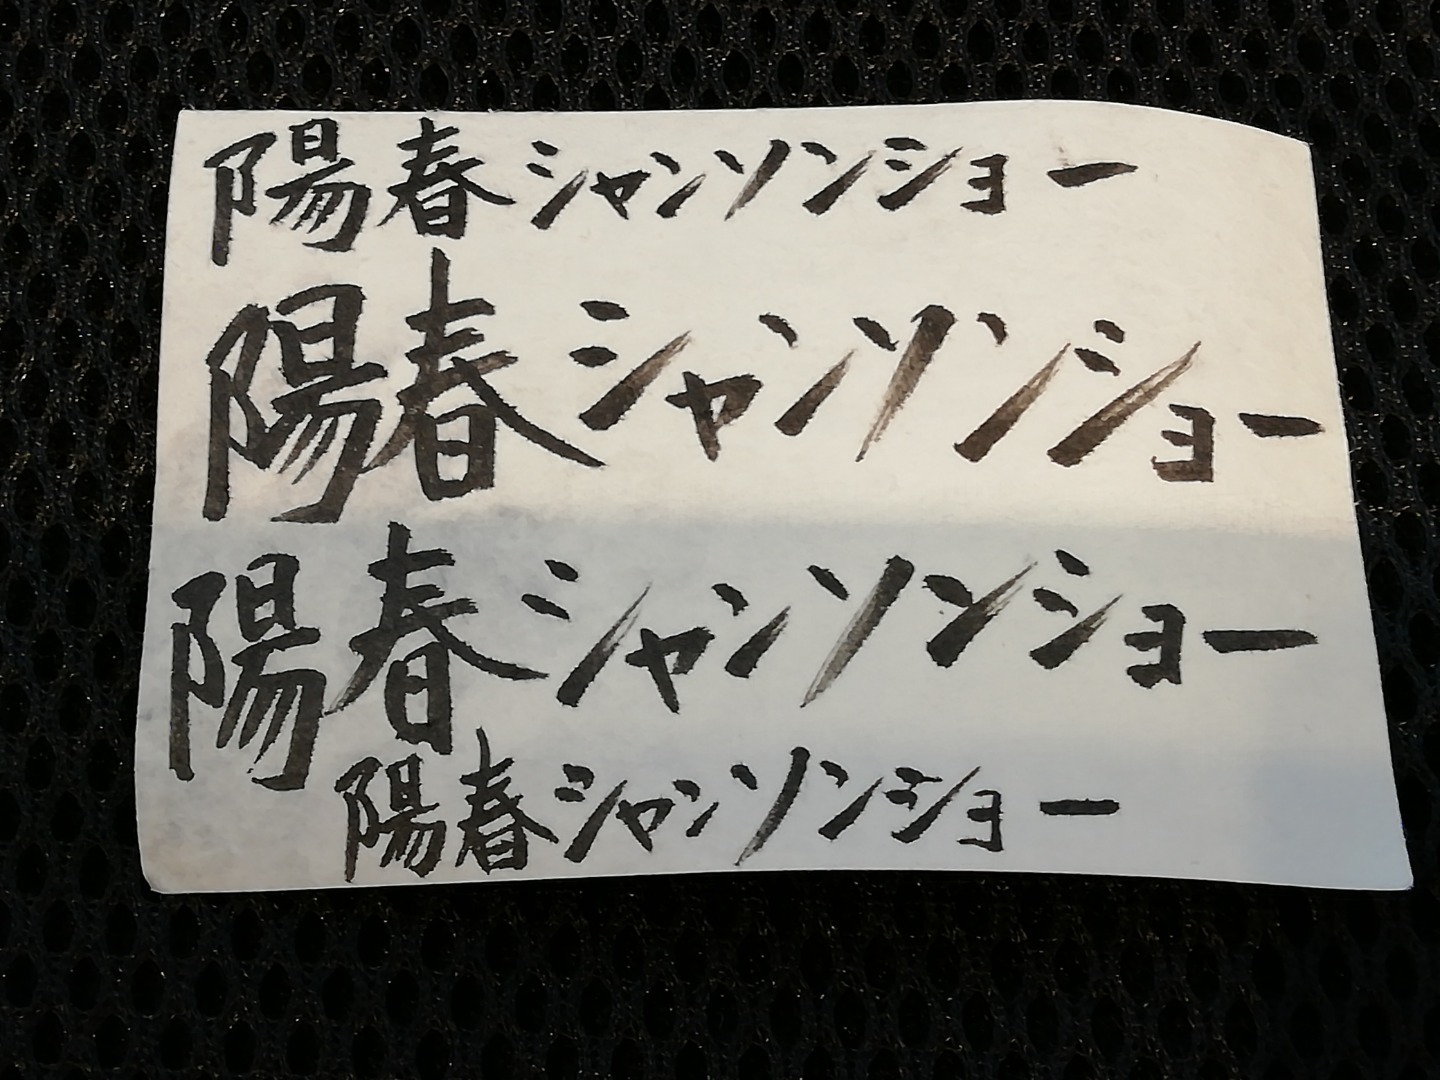 陽春シャンソンショー
陽春シャンソンショー
陽春シャンソンショー
陽春シャンソンショー